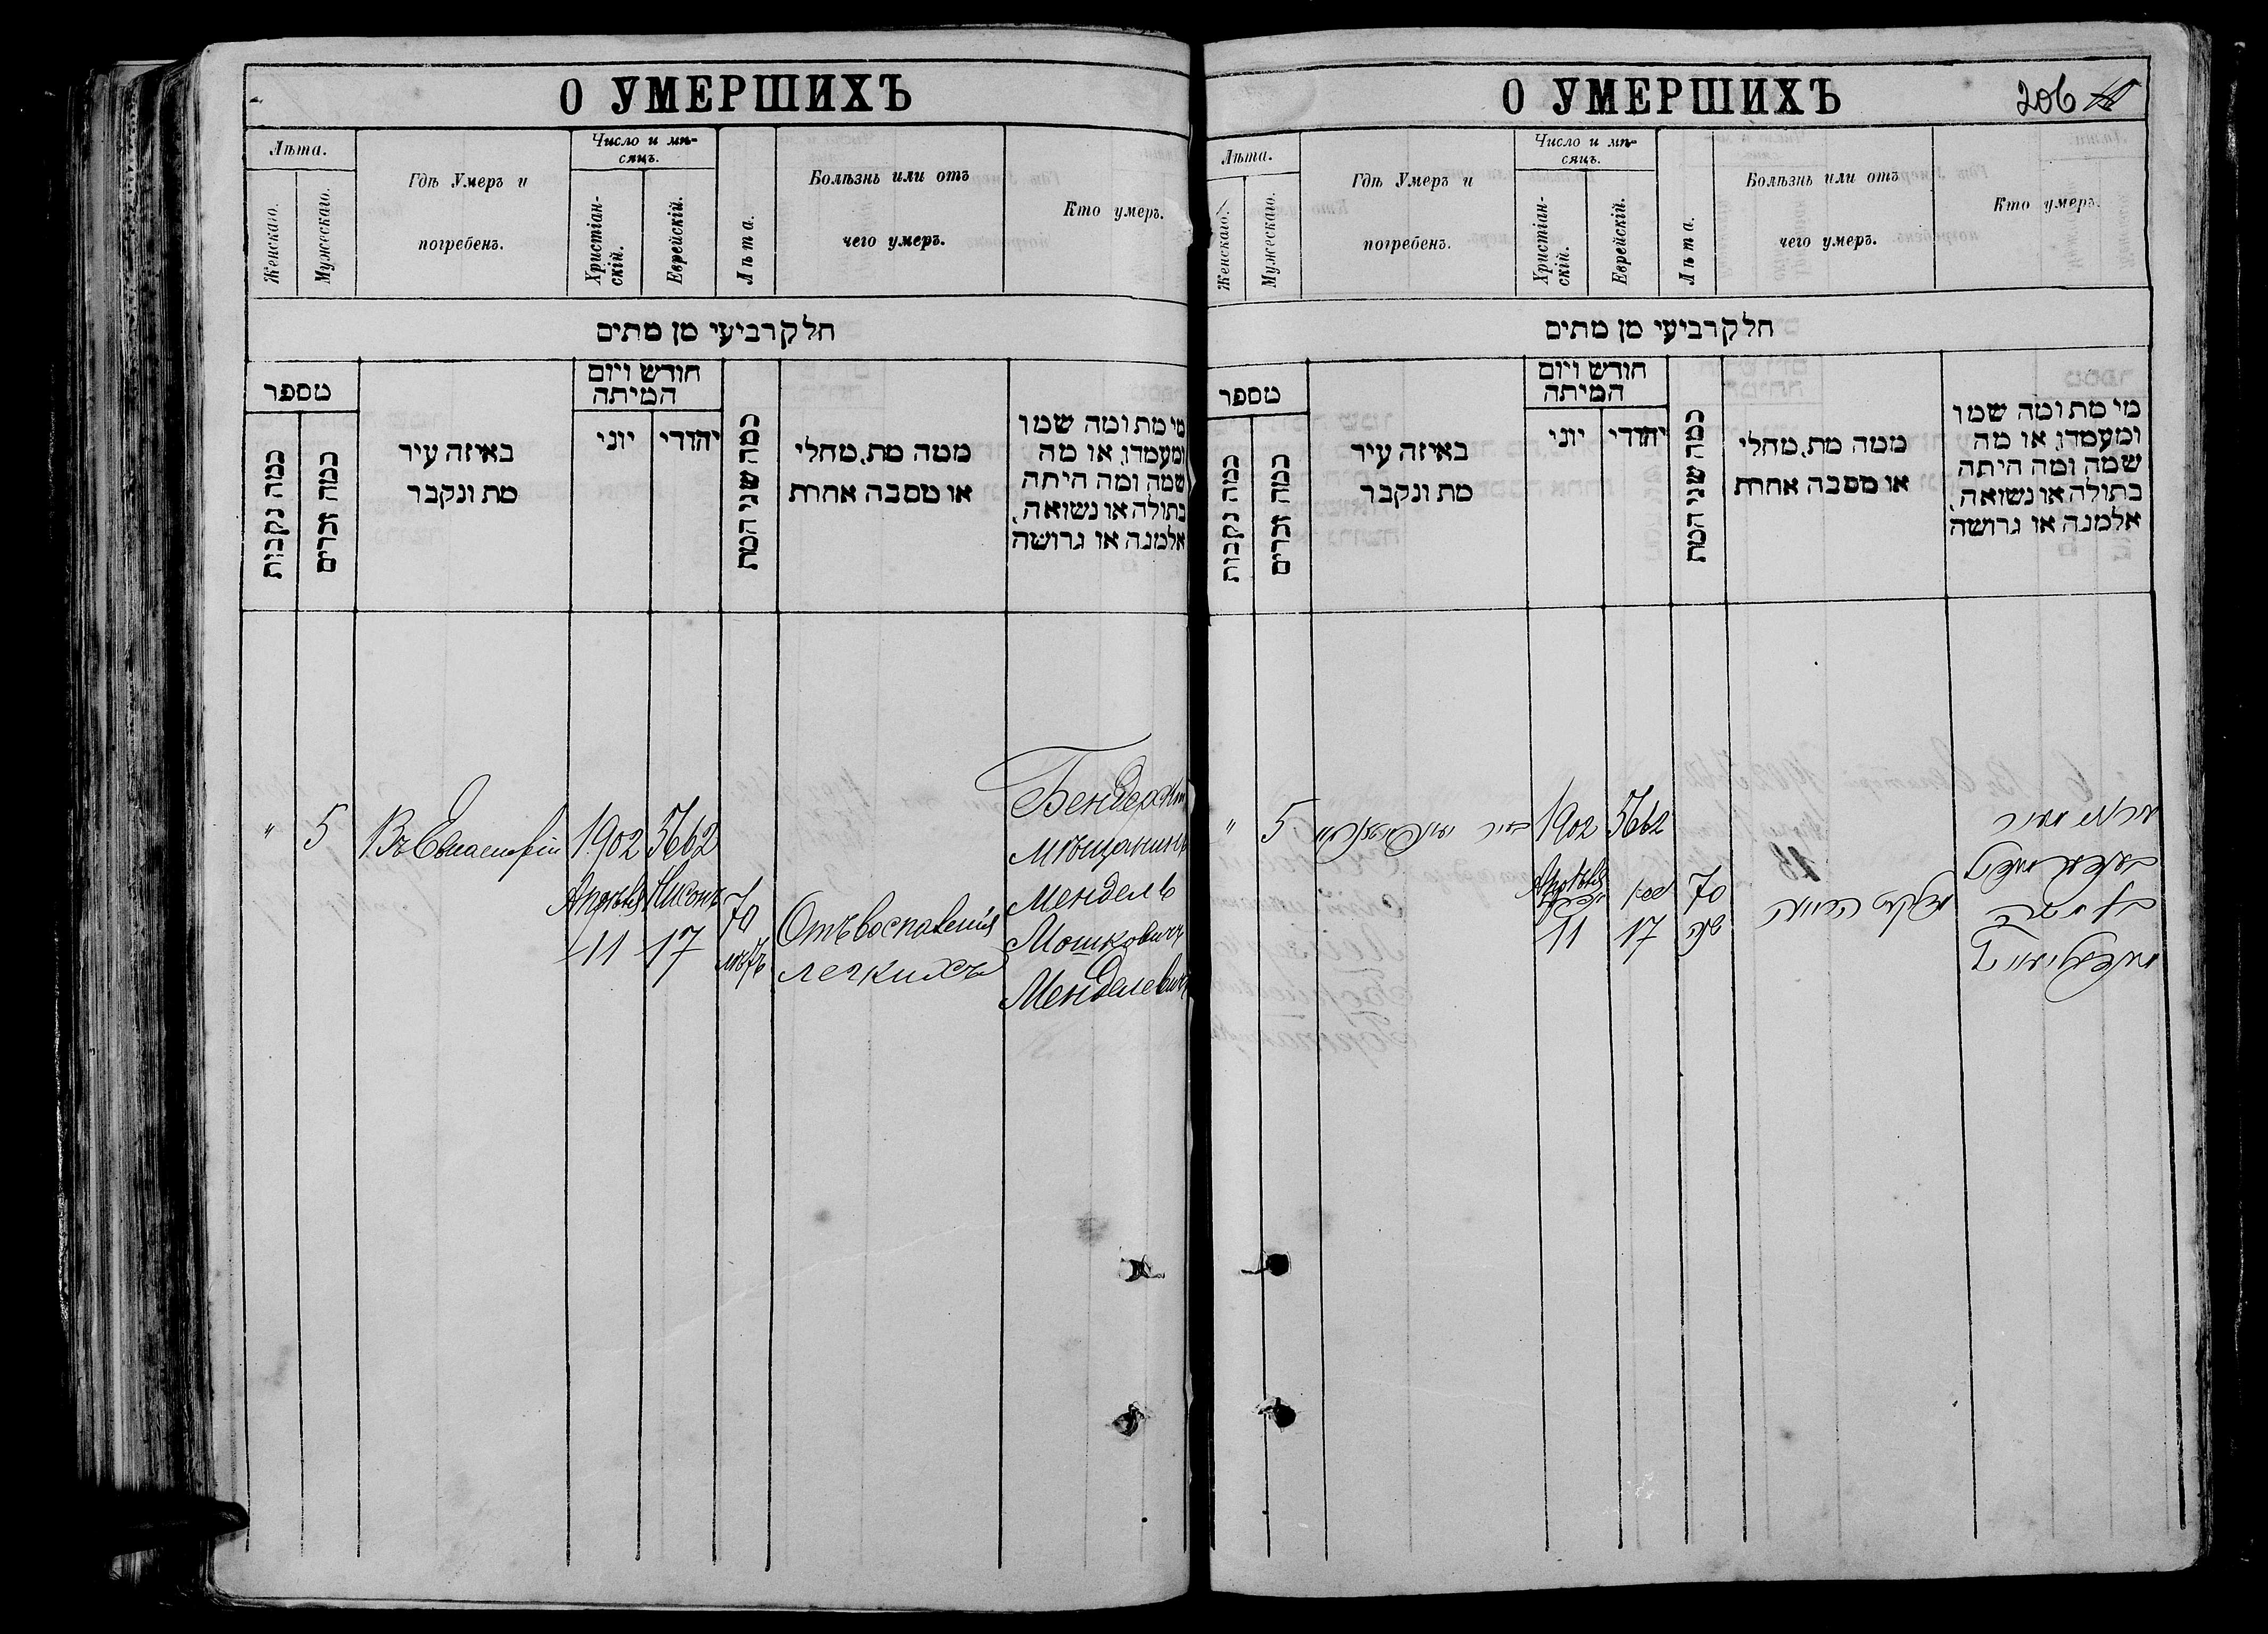 О УМЕРШИХЪ
Лѣта.
Женскаго.
Мужескаго.
Гдѣ Умеръ и
погребенъ.
Число и мѣ-
сяцъ.
Христіан-
скій.
Еврейскій.
Лѣта.
Болѣзнь или отъ
чего умеръ.
Кто умеръ.
חלק רביעי מן מתים
מספר
כמה נקבות
כמה זכרים
באיזה עיר
מת ונקבר
חודש ויום
המיתה
יוני
יהודי
כמה שני המת
ממה מת, מחלי
או מסבה אחרת
מי מת ומה שמו
ומעמדו, או מה
שמה ומה היתה
בתולה או נשואה,
אלמנה או גרושה
" 5 Въ Евпаторіи
1902
Апрѣля
11
5662
Нисонъ
17
70
лѣтъ
Отъ воспаленія
легкихъ
Бендерскій
мѣщанинъ
Мендель
Мошковичъ
Менделевичъ
О УМЕРШИХЪ
206
Лѣта.
Женскаго.
Мужескаго.
Гдѣ Умеръ и
погребенъ.
Число и мѣ-
сяцъ.
Христіан-
скій.
Еврейскій.
Лѣта.
Болѣзнь или отъ
чего умеръ.
Кто умеръ.
חלק רביעי מן מתים
מספר
כמה נקבות
כמה זכרים
באיזה עיר
מת ונקבר
חודש ויום
המיתה
יוני
יהודי
כמה שני המת
ממה מת, מחלי
או מסבה אחרת
מי מת ומה שמו
ומעמדו, או מה
שמה ומה היתה
בתולה או נשואה,
אלמנה או גרושה
" 5
1902
Апрѣля
11
5662
ניסן
17
70